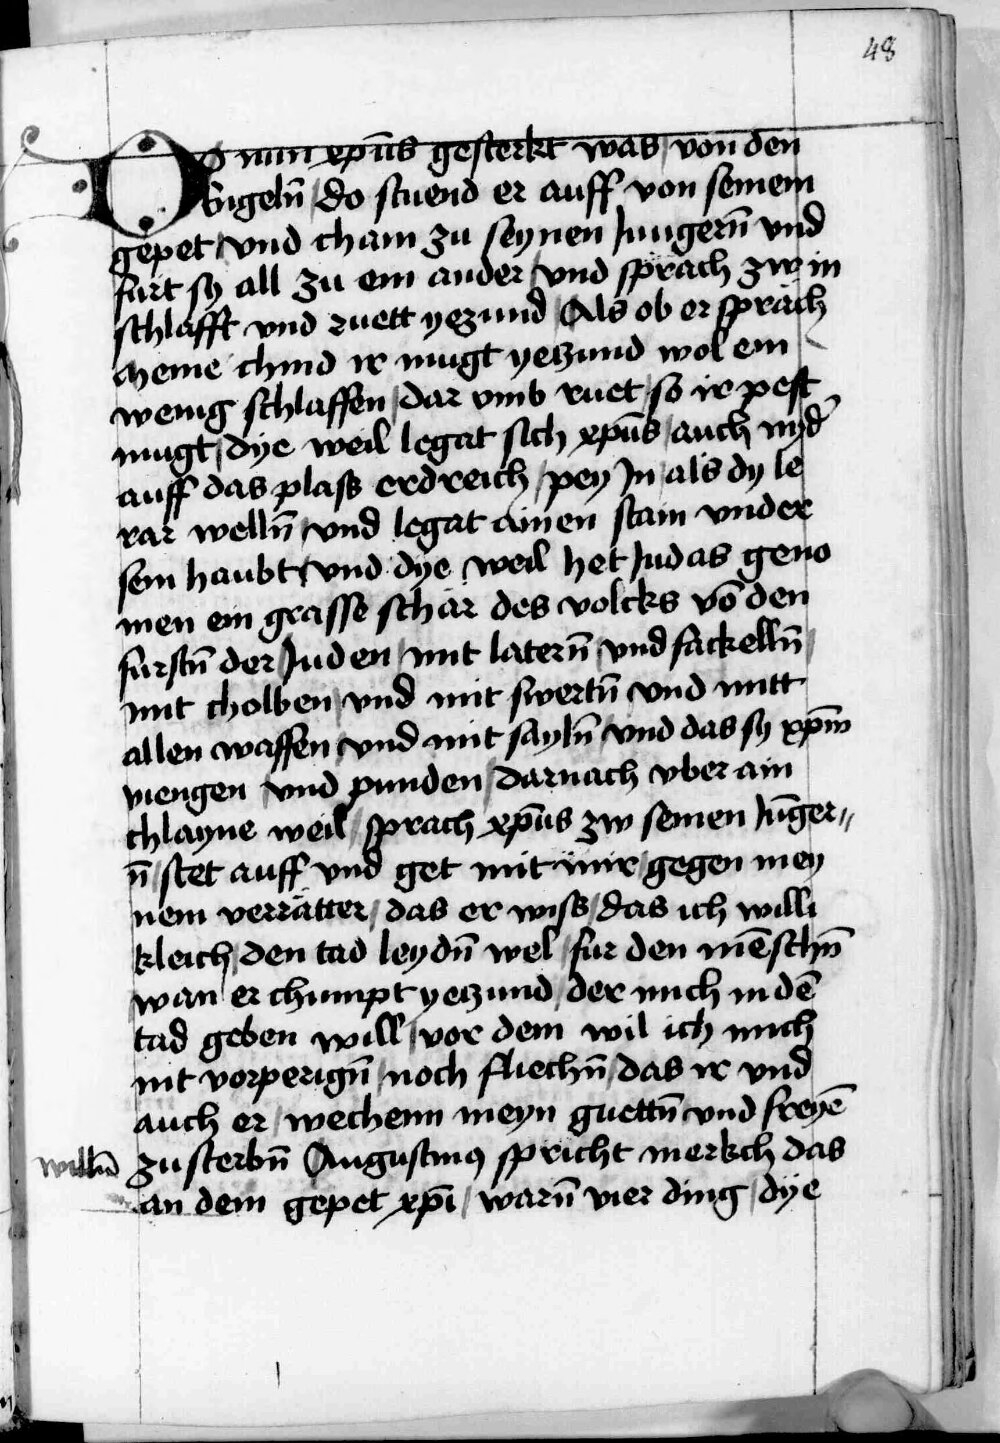 48
DO nun xp̄us gesterkt was / von den
Engeln̄ / do stuend er auff von seinem
gepet / vnd cham zu seynen Jungern̄ vnd
furt sy all zu ein ander / vnd sprach zw in
schlafft vnd ruett yezund / Als ob er sprach
meine chind ir mugt yeczund wol ein
wenig schlaffen / dar vmb ruet / so ir pest
mugt / dye weil legat sich xp̄us / auch nyd̓
auff das plass erdreich / pey Jn / als dy le
rar welln̄ / vnd legat ainen stain vnder
sein haubt / vnd dye weil het Judas geno
men ein grasse schar des volcks vō den
furstn̄ der Juden / mit latern̄ / vnd fackelln̄ /
mit cholben / vnd mit swertn̄ vnd mitt
allen waffen / vnd mit sayln̄ / vnd das sy xp̄m
viengen / vnd punden / darnach vber ain
chlayne weil / sprach xp̄us zw seinen Jūnger〃
n̄ / stet auff vnd get mit mir / gegen mey
nem verratter / das er wiss / das ich willi
kleich / den tad leydn̄ wel / fur den mēschn̄
wan er chumpt yeczund / der mich in dē
tad geben will / vor dem wil ich mich
nit vorperign̄ / noch fliechn̄ / das ir vnd
auch er / wechenn meyn guettn̄ vnd freyē
willn̄ zu sterbn̄ Augustinus spricht merkch das
an dem gepet xp̄i / warn̄ vier ding / dye